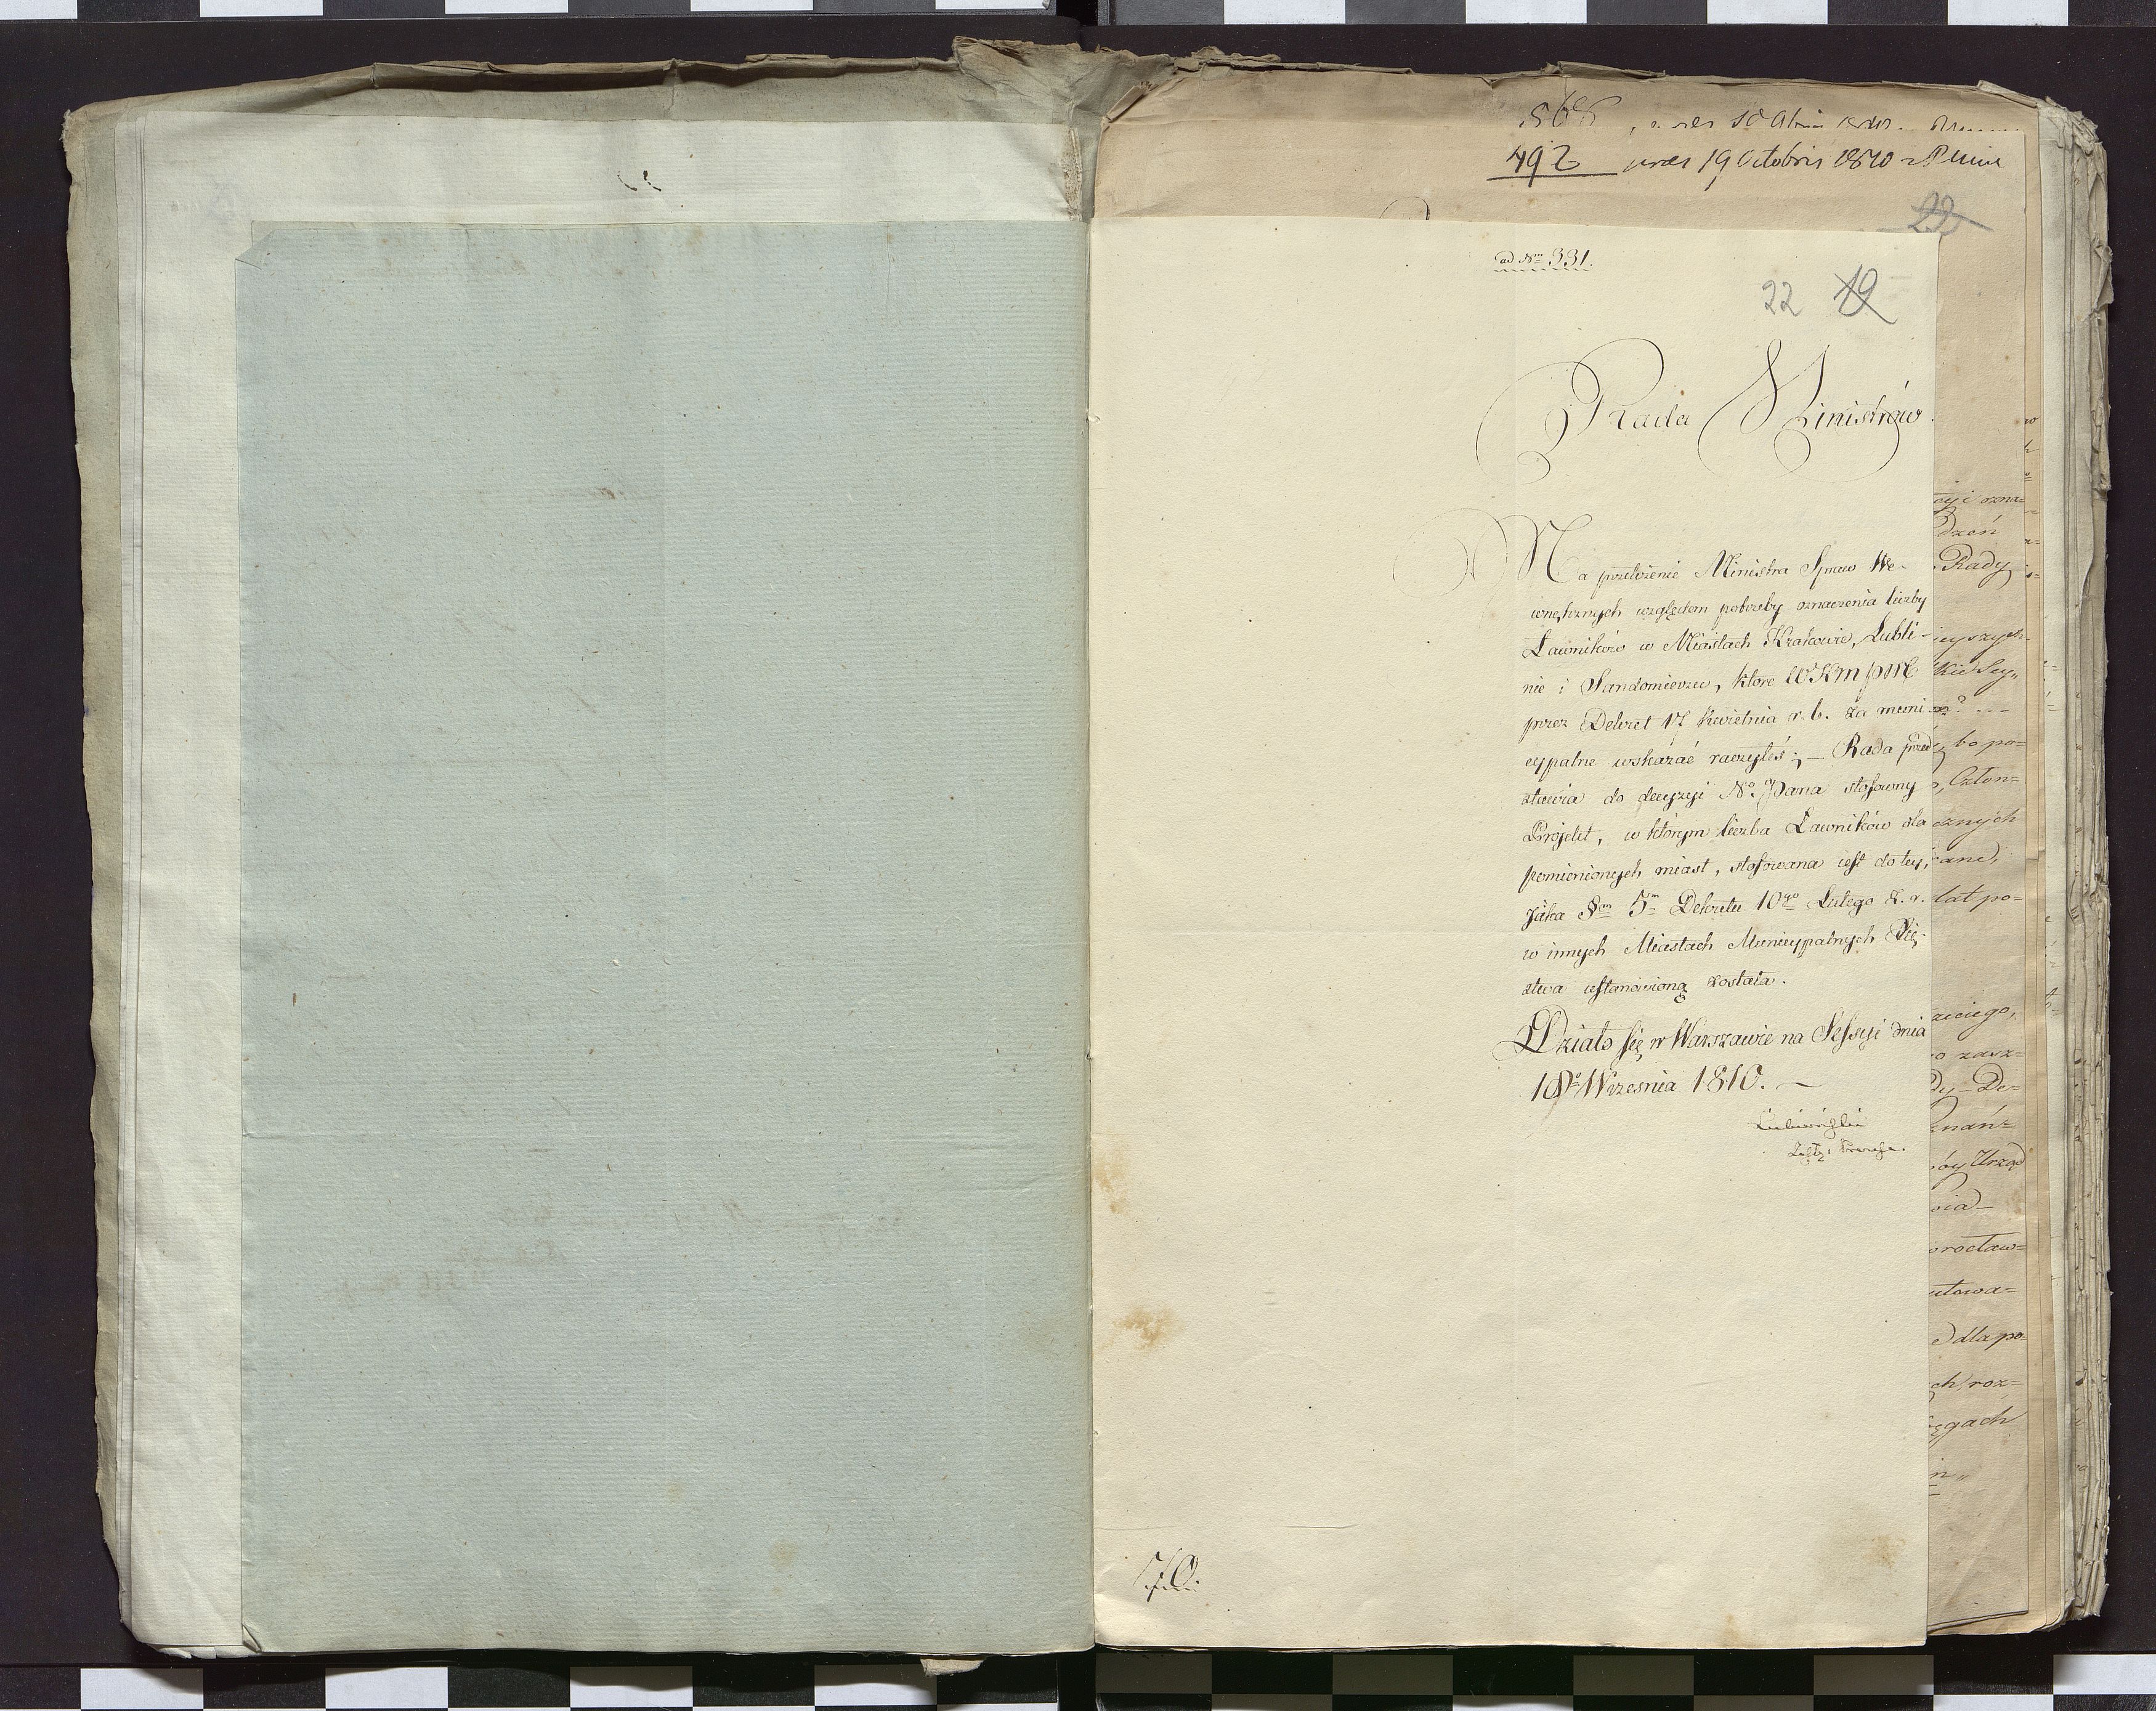 492 praes 19 Octobris 1810
22
ad Nm 331.
22 19
Rada Ministrów.
Na przełożenie Ministra Spraw We-
wnętrznych względem potrzeby oznaczenia liczby
Ławników w Miastach Krakowie, Lubli-
nie i Sandomierzu, które WKM PNM
przez Dekret 17 Kwietnia r. b. za muni-
cypalne wskazać raczyłeś; — Rada przed
stawia do decyzyi No. Pana stosowny
Projekt, w którym liczba Ławników dla
pomienionych miast, stosowana jest do tey,
jaka §em 5m Dekretu 10go Lutego z. r.
w innych Miastach Municypalnych Xię-
stwa ustanowioną została.
Działo się w Warszawie na Sessyi dnia
18o Wrzesnia 1810. —
Lubieński
Zastę: Prezesa.
70.
eyi ozna=
dzeń
Rady
bo po=
Człon=
cznych
lat po=
zasz=
Urząd
dla po=
roz=